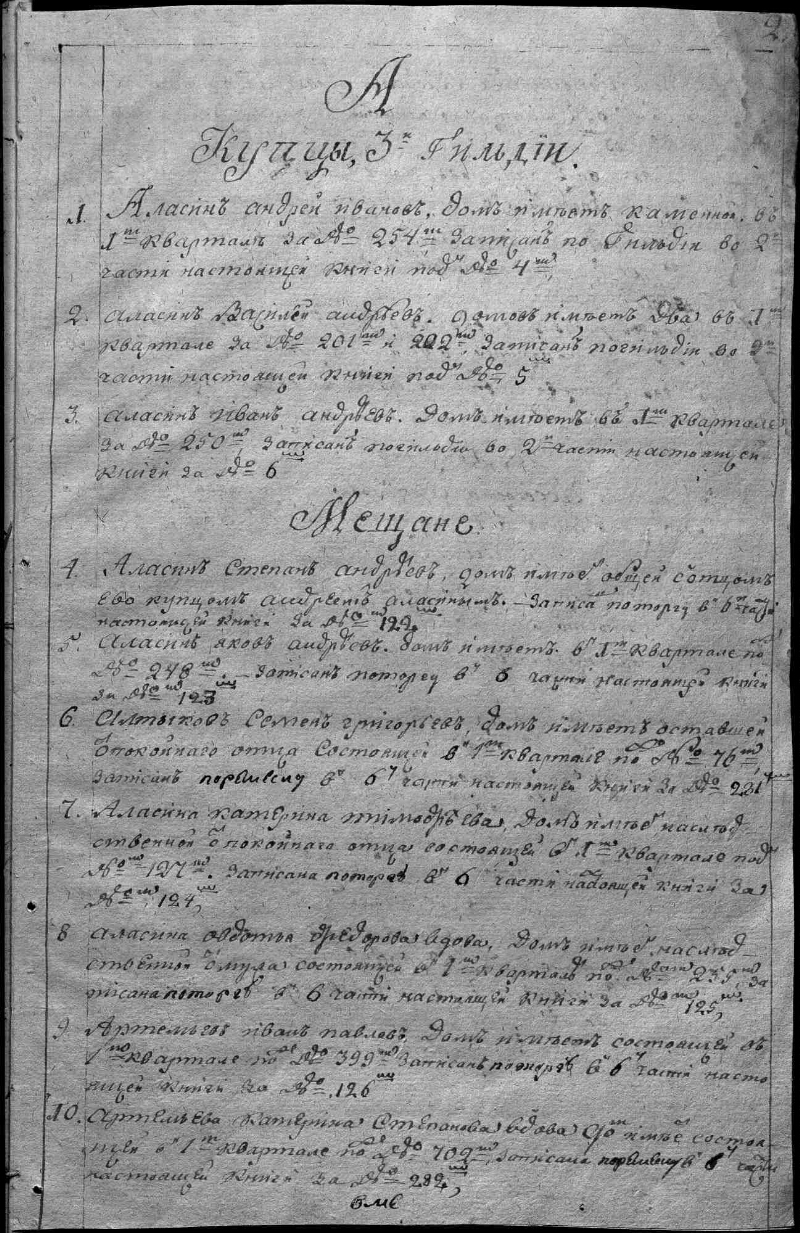 2.
А
Купцы, 3й Гильдіи.
1. Аласинъ андрей ивановъ. домъ имѣетъ каменной. въ
1мъ кварталѣ за №о 254мъ Записанъ по Гильдіи во 2й
части настоящей книги подъ №о 4мъ
2. аласинъ Василей андрѣевъ. домовъ имѣетъ два въ 1мъ
квартале за №о 201мъ и 202мъ, Записанъ погильдіи во 2й
части настоящей книги подъ №о, 5мъ
3. аласинъ иванъ андрѣевъ. домъ имѣетъ въ 1мъ квартале
за №о 250мъ, записанъ погильдіи во 2й части настоящей
книги за №о 6мъ
Мещане
4. Аласинъ Степанъ андрѣевъ, домъ имѣеть общей сотцомъ
ево купцомъ андреемъ аласинымъ. Записанъ поторгу въ 6й части
настоящей книги за №о 122мъ
5. Аласинъ яковъ андрѣевъ. домъ имѣетъ въ 1мъ квартале подъ
№о 248мъ. Записанъ поторгу въ 6 части настоящей книги
за №о 123мъ
6. Алтыковъ Семенъ григорьевъ, домъ имѣетъ оставшей
отпокойнаго отца состоящей въ 1мъ квартале подъ №о 76мъ,
записанъ въ 6й части настоящей книги за №о 221мъ
7. Аласина катерина тимофѣева, домъ имѣеть наслѣд
ственной отпокойнаго отца состоящей въ 1мъ квартале подъ
№омъ 127мъ. Записана поторгу въ 6 части настоящей книги за
№омъ, 124мъ,
8 аласина овдотья федорова вдова, домъ имѣеть наслѣд-
ственной отмужа состоящей въ 1мъ кварталѣ подъ №омъ 255мъ, за
писана поторгу въ 6 части настоящей книги за №омъ 125мъ,
9. Артемьевъ иванъ павловъ, домъ имѣетъ состоящей въ
1мъ квартале подъ №о 399мъ Записанъ поторгу въ 6й части насто
ящей книги за №о, 126мъ
10. Артемьева катерина Степанова вдова домъ имѣеть состоя-
щей въ 1мъ квартале подъ №о 702мъ, записана въ 6й части
настоящей книги за №о 282мъ,